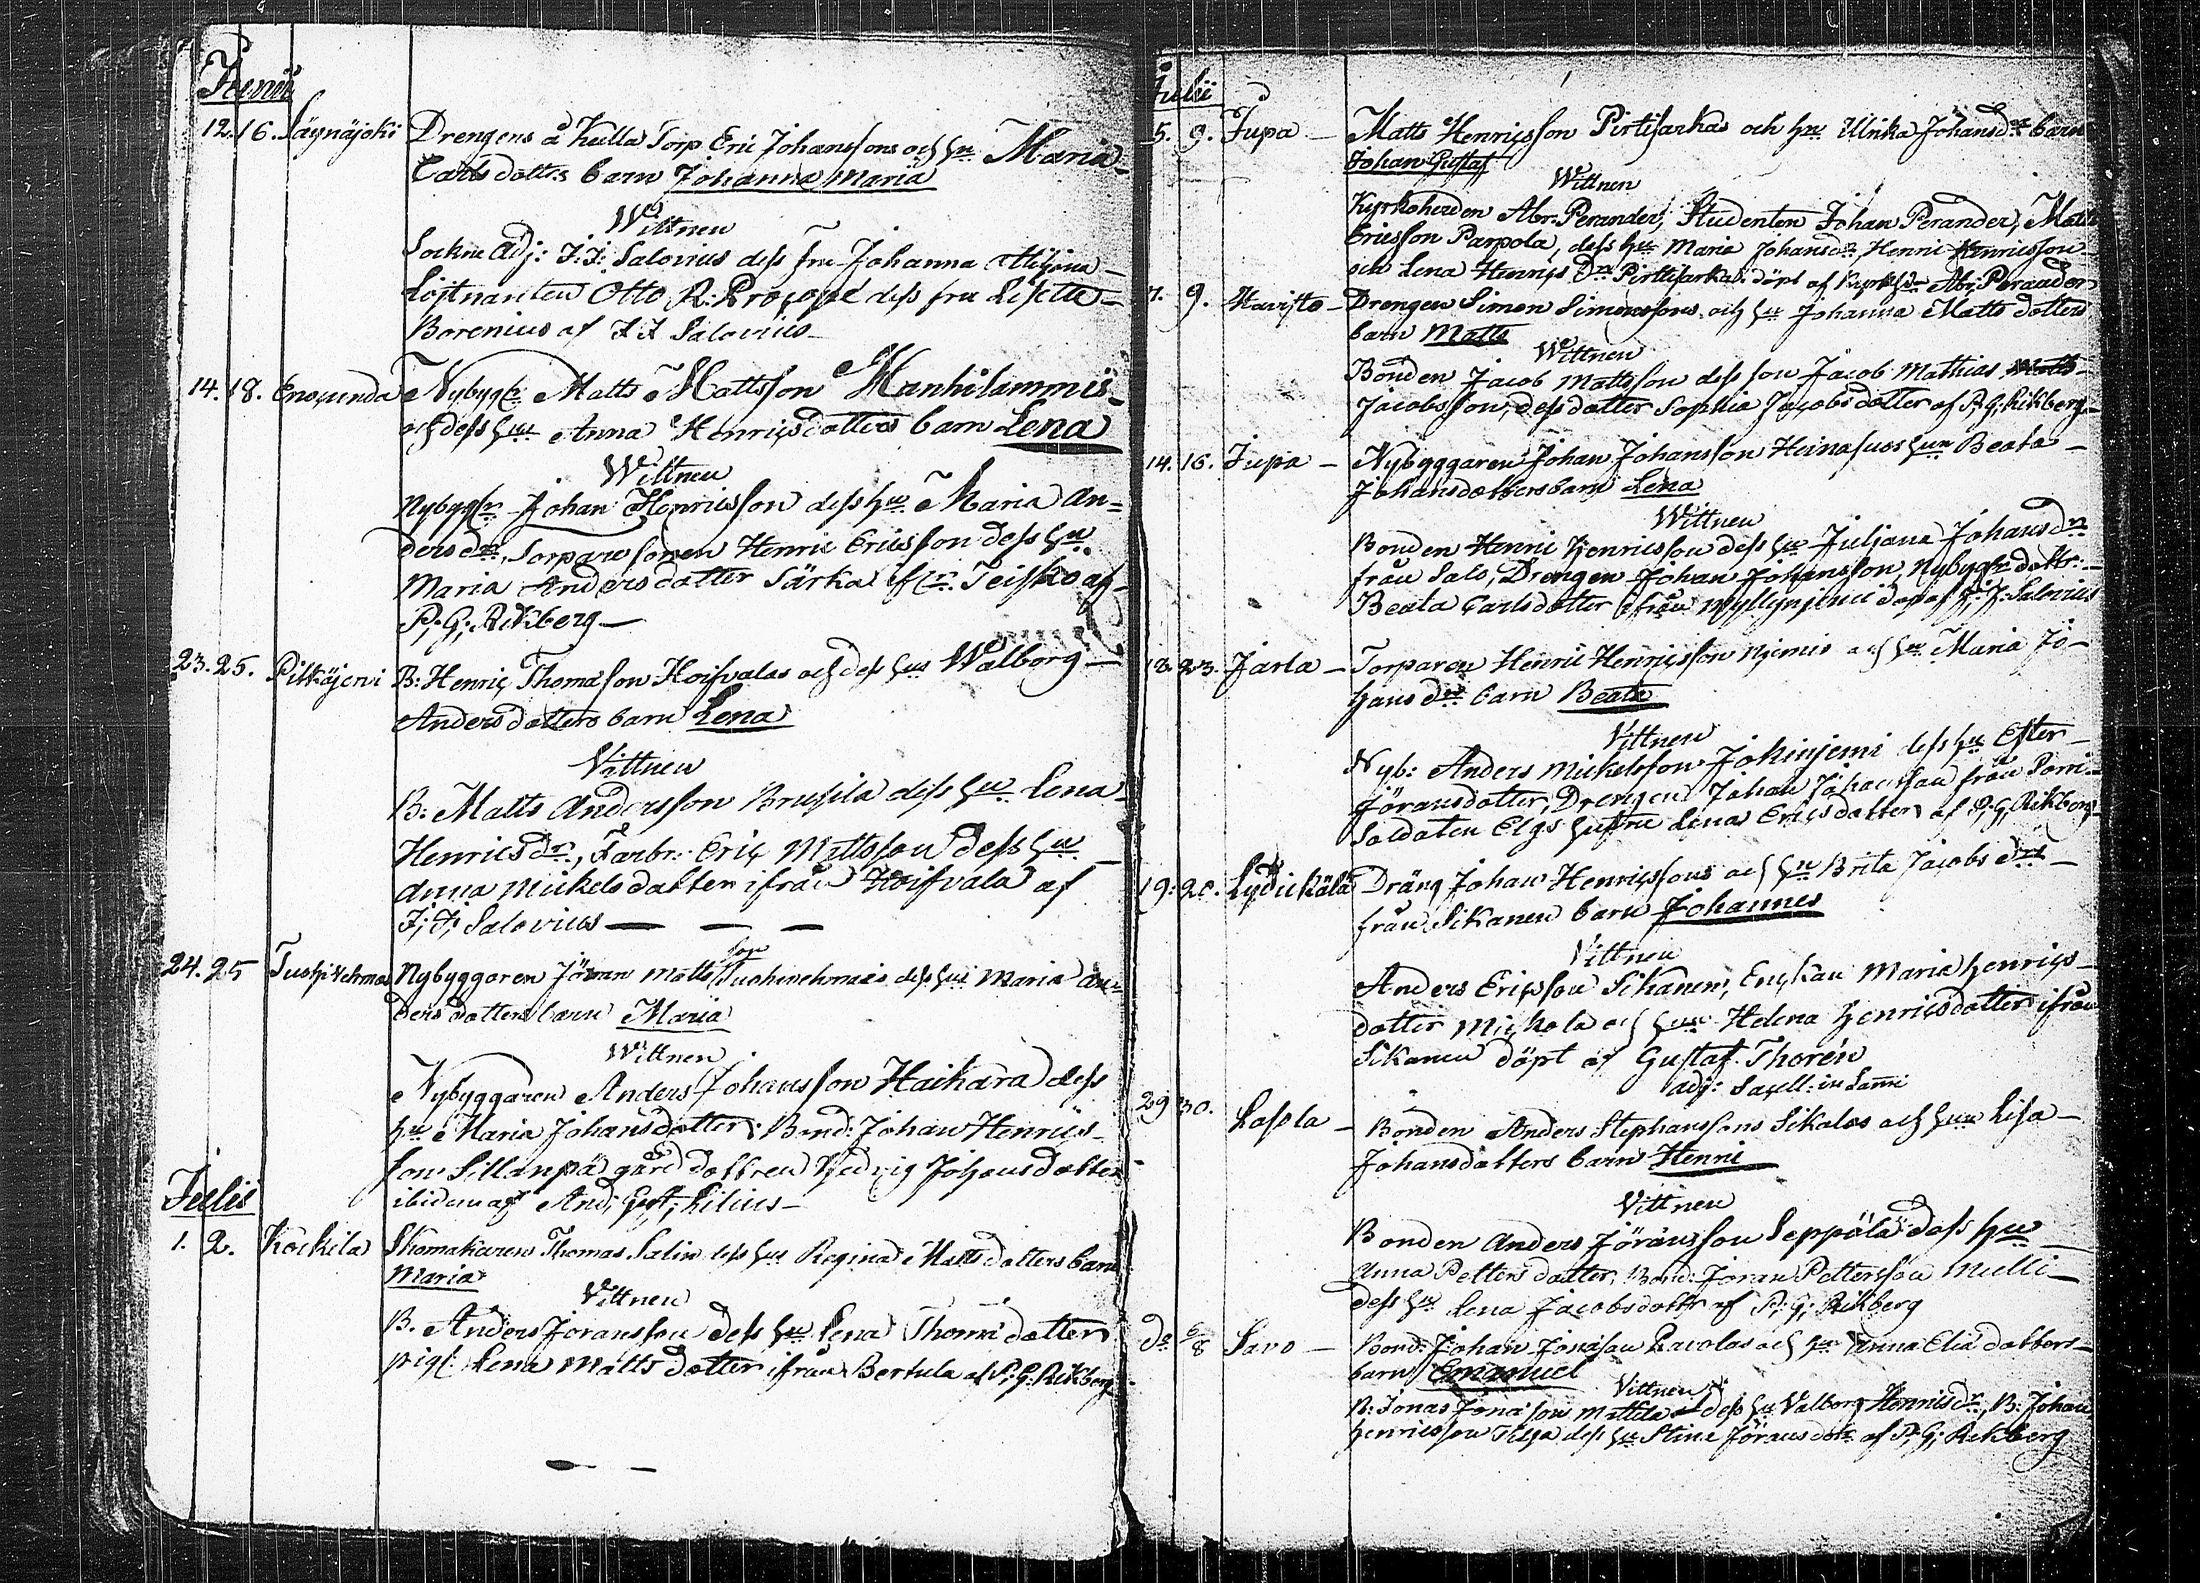 Junii
12. 16. Läynäjoki Drengens å Kulla Torp Eric Johanssons och hu Maria
Carls dotters barn Johanna Maria
Wittnen
Sockne Adj: J: J: Salovius dess fru Johanna
Löjtnanten Otto R: Procopé dess fru Lisette
Borenius af J J Salovius
14. 18. Enosunda Nybygr Matts Mattsson Manhilammis
och dess hus Anna Henricsdotters barn Lena
Wittnen
Nybygr Johan Henricsson dess hu Maria An=
ders dr, Torpare sonen Henric Ericsson dess hu
Maria Anders dotter Särkä ifr Teisko af
P: G: Rikberg
23. 25. Pitkäjervi B: Henric Thomasson Hoifvalas och dess hus Walborg
Anders dotters barn Lena
Vittnen
B: Matts Andersson Brusila dess hu Lena
Henricsdr, Farbr: Eric Mattsson dess hu
Anna Mickels dotter ifrån Hoifvala af
J: J: Salovius
24. 25 Tuskivehmas Nybyggaren Jöran Matts son Tuskivehmais dess hus Maria An=
ders dotters barn Maria
Wittnen
Nybyggaren Anders Johansson Haihara dess
hu Maria Johansdotter, Bond: Johan Henrics-
son Sillanpä gård dottren Hedvig Johansdotter
ibidem af And: Gust: Lilius
Julii
1. 2. Kockila Skomakaren Thomas Salin dess hus Regina Matts dotters barn
Maria
Vittnen
B. Anders Joransson dess hu Lena Thomæ dotter
pig: Lena Matts dotter ifrån Bertula af P: G: Rikberg
Julii
5. 9. Jupa Matts Henricsson Pirtisarkas och hu Ulrika Johansdr barn
Johan Gustaf
Wittnen
Kyrkoherden Abr: Perander, Studenten Johan Perander, Matts
Ericsson Parpola, dess hu Maria Johansdr, Henric Henricsson
och Lena Henrics Dr Pirttisarka döpt af Kyrkhdn Abr: Perander
7. 9. Havisto Drengen Simon Simonssons och hu Johanna Matts dotters
barn Matts
Wittnen
Bonden Jacob Mattsson dess son Jacob Mathias Matts
Jacobsson, dess dotter Sophia Jacobsdotter af P: G: Rikberg
14. 16. Jupa Nybyggaren Johan Johansson Heinasuos hun Beata
Johansdotters barn Lena
Wittnen
Bonden Henric Henricsson dess hu Juljana Johansdr
från Salo, Drengen Johan Johansson, Nybygr dottr:
Beata Carlsdotter ifrån Myllynjemi döpt af J: J: Salovius
18. 23. Jarla Torparen Henric Henricsson Njemis och hu Maria Jo-
hans drs barn Beata
Vittnen
Nyb: Anders Mickelsson Jokinjemi dess hu Ester
Jöransdotter, Drengen Johan Johansson från Porri
Soldaten Elgs hustru Lena Ericsdotter af P: G: Rikberg
19. 20. Lydickälä Dräng Johan Henricssons och hu Brita Jacobs drs
från Sikanen barn Johannes
Vittnen
Anders Ericsson Sikanen, Enckan Maria Henrics
dotter Mickola och hun Helena Henricsdotter ifrån
Sikanen döpt af Gustaf Thorén
adj: Sacell: in Lami
29 30. Lassila Bonden Anders Stephanssons Sikalas och hun Lisa
Johansdotters barn Henric
Vittnen
Bonden Anders Jöransson Seppälä dess hu
Anna Petters dotter, Bond: Joran Pettersson Mielli
dess hu Lena Jacobsdottr af P: G: Rikberg
Do 6/8 Savo Bond: Johan Jonasson Ravolas och hu Anna Elia dotters
barn Emanuel
Vittnen
B: Jonas Jonasson Mattila dess hu Valborg Henricsdr, B: Johan
Henricsson Tilga dess hu Stina Jörans dotr af P: G: Rikberg